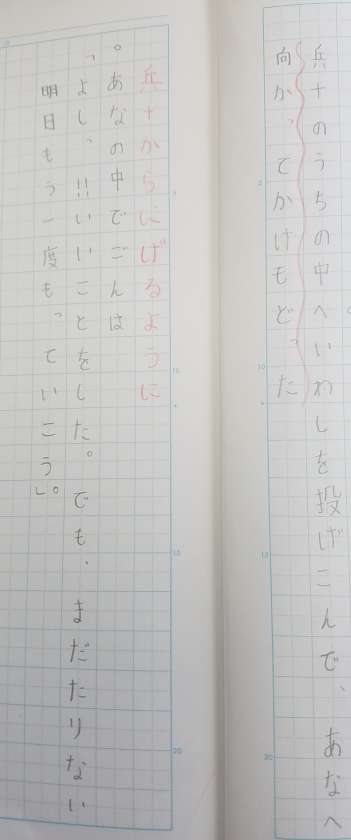 兵十のうちの中へいわしを投げこんで、あなへ
向かってかけもどった
兵十からにげるように
。あなの中でごんは
「よし、!!いいことをした。でも、まだたりない
明日もう一度もっていこう。」